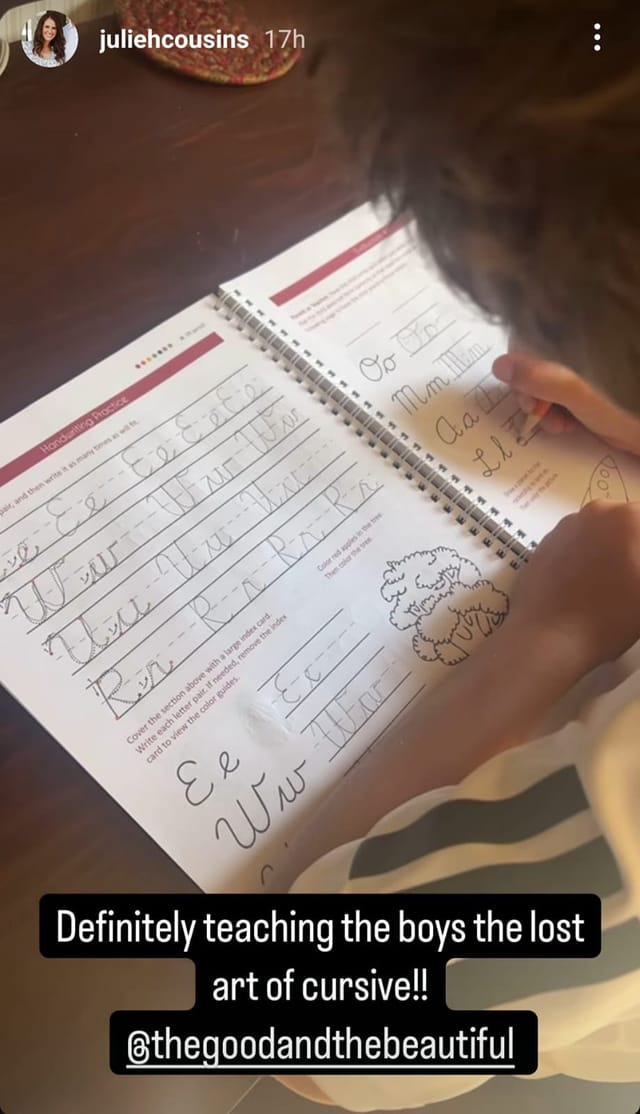 juliehcousins 17h
Handwriting Practice
pair, and then write it as many times as will fit.
Ee Ee Ee Ee
Ww Ww Ww
Uu Uu Uu
Rr Rr Rr Rr
Color red apples in the tree.
Then color the tree.
Cover the section above with a large index card.
Write each letter pair. If needed, remove the index
card to view the color guides.
Ee Ee
Ww Ww
Oo Oo
Mm Mm
Aa
Ll
Definitely teaching the boys the lost
art of cursive!!
@thegoodandthebeautiful